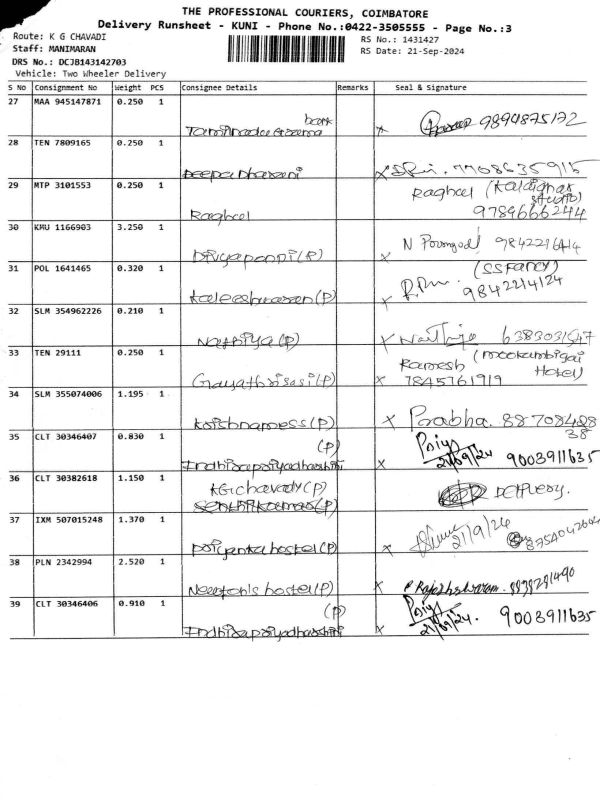 THE PROFESSIONAL COURIERS, COIMBATORE
Delivery Runsheet - KUNI - Phone No.:0422-3505555 - Page No.:3
Route: K G CHAVADI
RS No.: 1431427
Staff: MANIMARAN
RS Date: 21-Sep-2024
DRS No.: DCJB143142703
Vehicle: Two Wheeler Delivery
S No Consignment No Weight PCS Consignee Details Remarks Seal & Signature
27 MAA 945147871 0.250 1 bank
x 9894875172
28 TEN 7809165 0.250 1
Deepa Dharani x
29 MTP 3101553 0.250 1 Ragheel
Ragheel 9789666244
30 KMU 1166903 3.250 1
(P) x N
31 POL 1641465 0.320 1 (SS Fancy)
Kaleeshwaran (P) x 9842214124
32 SLM 354962226 0.210 1
Nathiya (P) x 6383031547
33 TEN 29111 0.250 1 Ramesh (mookambigai
Gayathrisasi (P) x 7845761919 Hotel)
34 SLM 355074006 1.195 1
Krishnamess (P) x Prabha. 88708428
38
35 CLT 30346407 0.830 1 (P) Priya
Indhirapriyadharshini x 21/09/24 9003911635
36 CLT 30382618 1.150 1 KG chavady (P)
Senthilkumar (P) Delivery.
37 IXM 507015248 1.370 1
Priyanka hostel (P) x 21/9/24
38 PLN 2342994 2.520 1
Newton's hostel (P) x
39 CLT 30346406 0.910 1 (P) Priya
Indhirapriyadharshini x 21/09/24. 9003911635